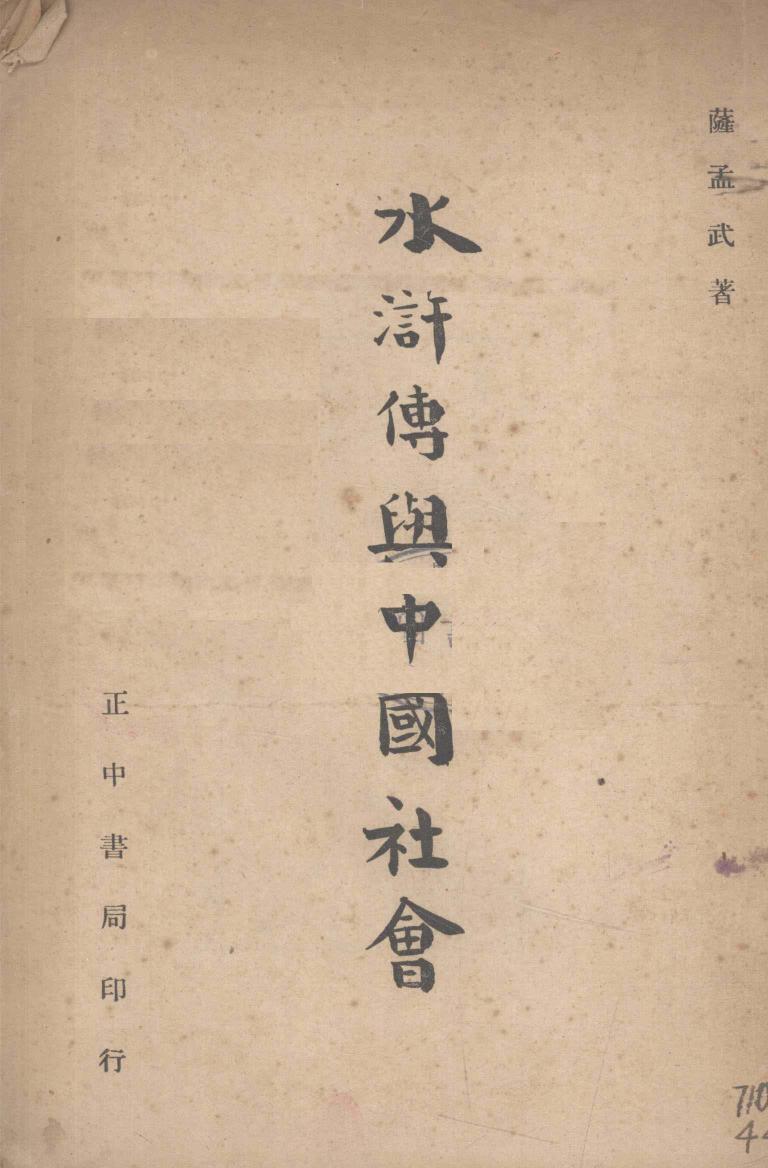 薩孟武著
水滸傳與中國社會
正中書局印行
710